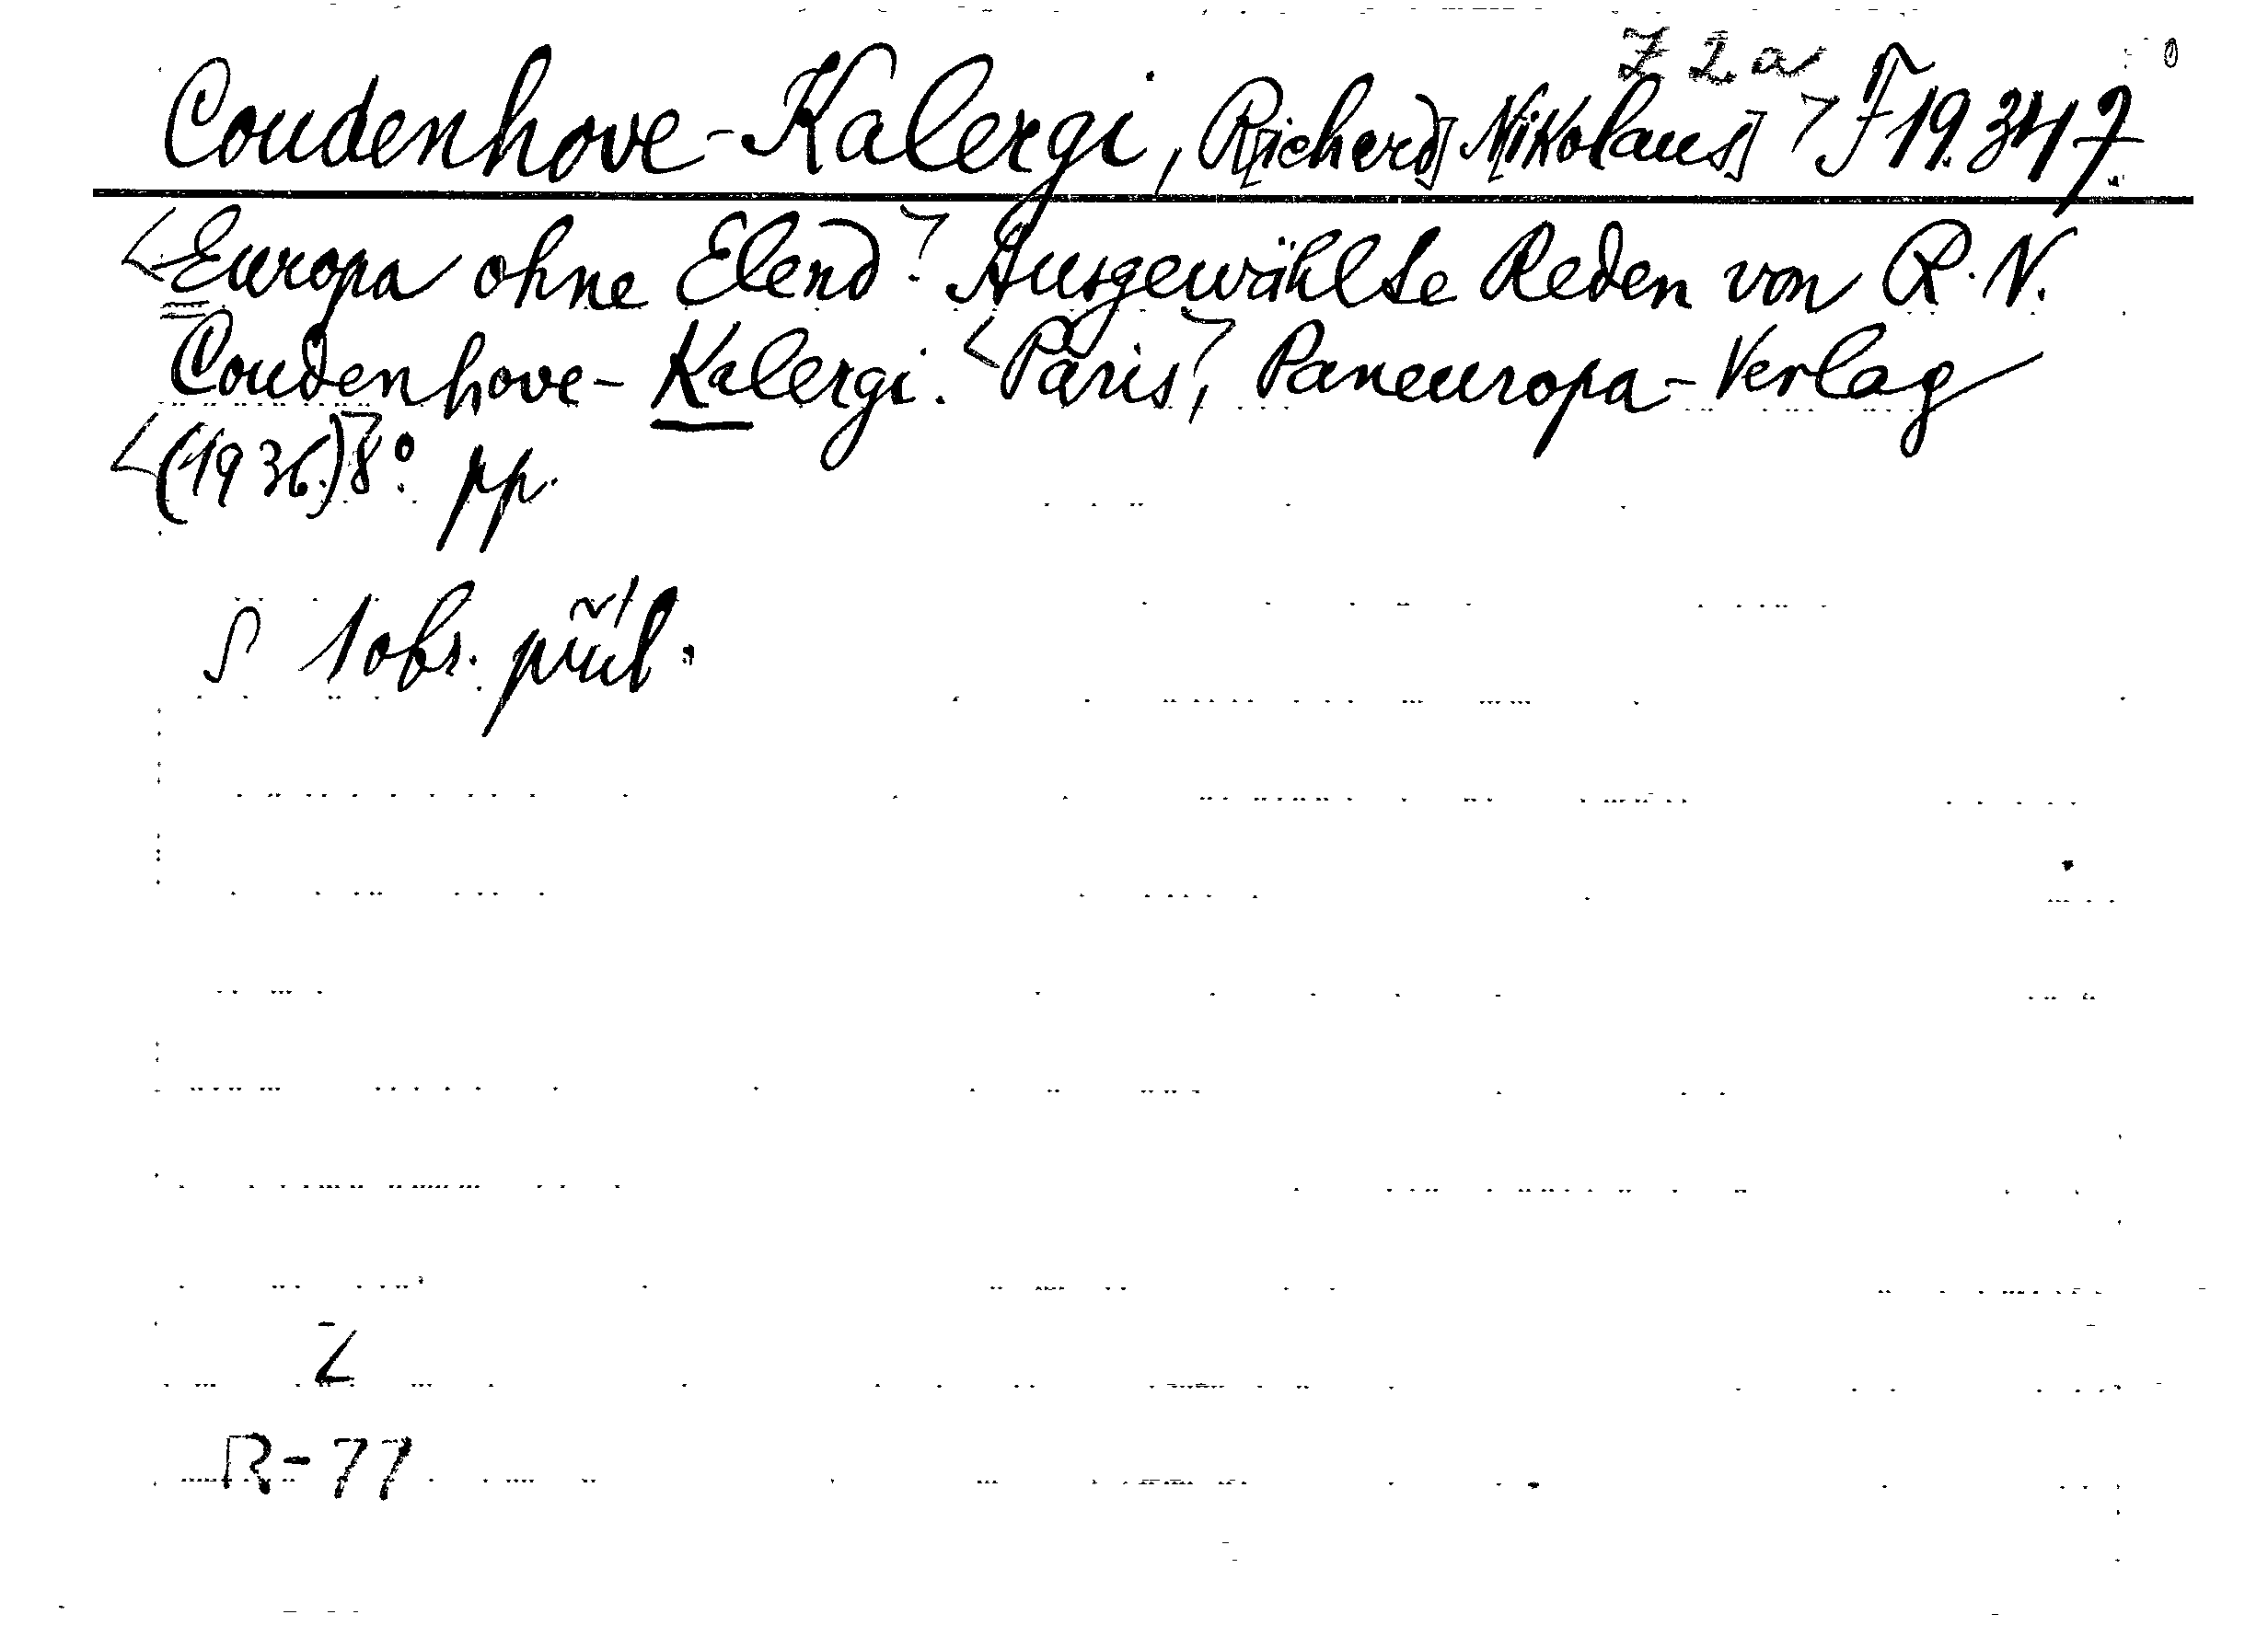 Z 2a
Coudenhove-Kalergi, R[ichard] N[ikolaus] > F 19.347.
<Europa ohne Elend.> Ausgewählte Reden von R. N.
Coudenhove-Kalergi. <Paris>, Paneuropa-Verlag
<(1936.)> 8° pp.
S 1 obr. příl.
Z
R-77